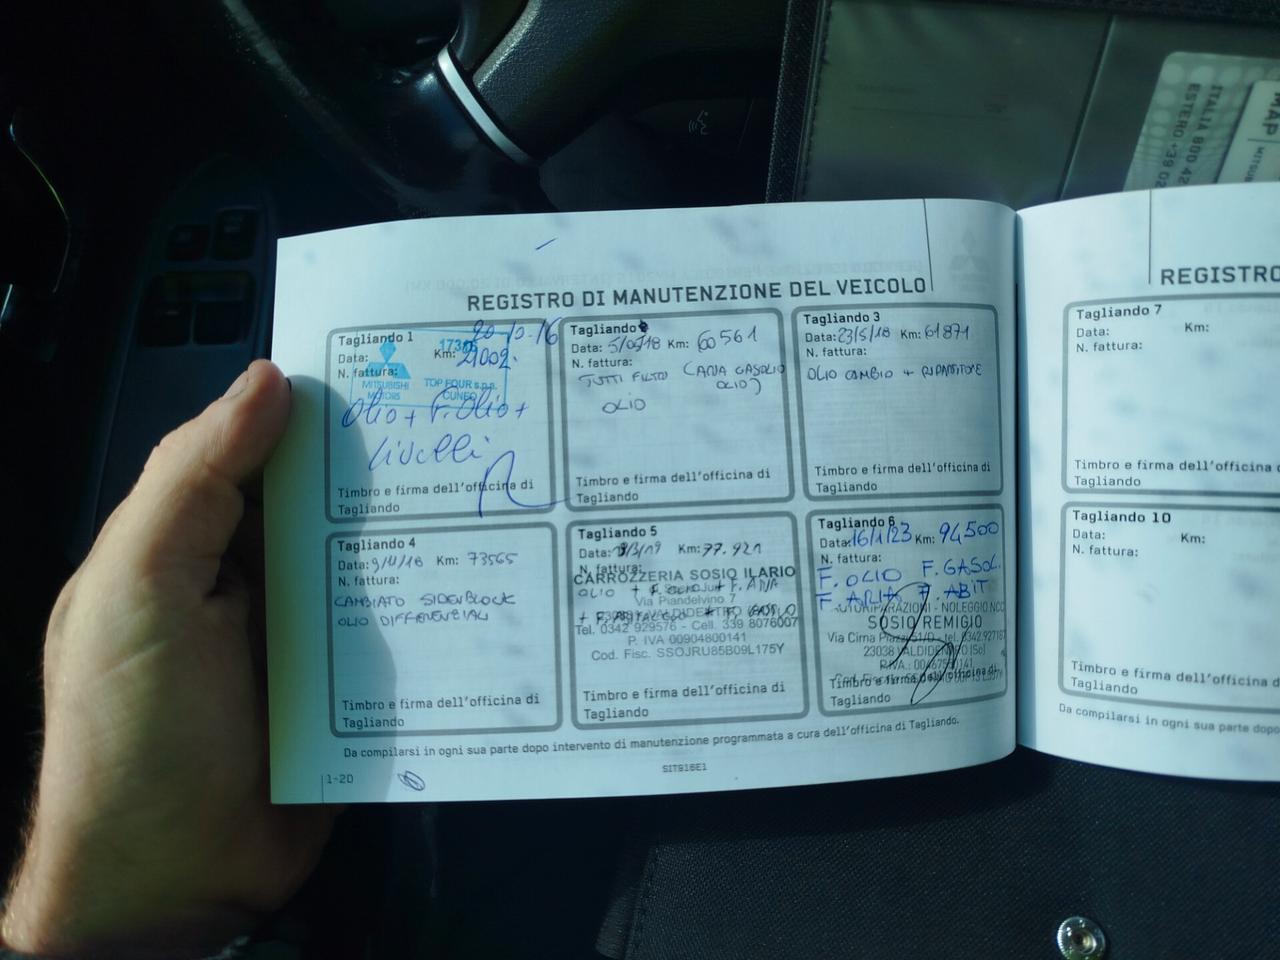 ITALIA 800 42
ESTERO +39 02
MAP
REGISTRO DI MANUTENZIONE DEL VEICOLO
Tagliando 1
20-10-16
Data:
Km: 21002.
N. fattura:
MITSUBISHI
MOTORS
TOP FOUR s.p.a.
CUNEO
Olio + F. Olio +
livelli
Timbro e firma dell'officina di
Tagliando
Tagliando
Data: Km: 60561
N. fattura:
TUTTI FILTRI (ARIA GASOLIO
OLIO)
OLIO
Timbro e firma dell'officina di
Tagliando
Tagliando 3
Data: 23/5/18 Km: 61871
N. fattura:
OLIO CAMBIO + RIPARTITORE
Timbro e firma dell'officina di
Tagliando
Tagliando 4
Data: 9/11/18 Km: 73565
N. fattura:
CAMBIATO SIDENBLOCK
OLIO DIFFERENZIALI
Timbro e firma dell'officina di
Tagliando
Tagliando 5
Data: Km: 77.921
N. fattura:
CARROZZERIA SOSIO ILARIO
OLIO + F. OLIO + F. ARIA
Via Piandelvino 7
Tel. 0342 929576 - Cell. 339 8076007
P. IVA 00904800141
Cod. Fisc. SSOJRU85B09L175Y
Timbro e firma dell'officina di
Tagliando
Tagliando 6
Data: 16/1/23 Km: 94500
N. fattura:
F. OLIO F. GASOL.
F. ARIA F. ABIT
AUTORIPARAZIONI - NOLEGGIO NCC
SOSIO REMIGIO
Via Cima Piazzi 51/D - tel. 0342.927187
23038 VALDIDENTRO (So)
Timbro e firma dell'officina di
Tagliando
Da compilarsi in ogni sua parte dopo intervento di manutenzione programmata a cura dell'officina di Tagliando.
1-20
SIT916E1
REGISTRO
Tagliando 7
Data: Km:
N. fattura:
Timbro e firma dell'officina
Tagliando
Tagliando 10
Data: Km:
N. fattura:
Timbro e firma dell'officina
Tagliando
Da compilarsi in ogni sua parte dopo